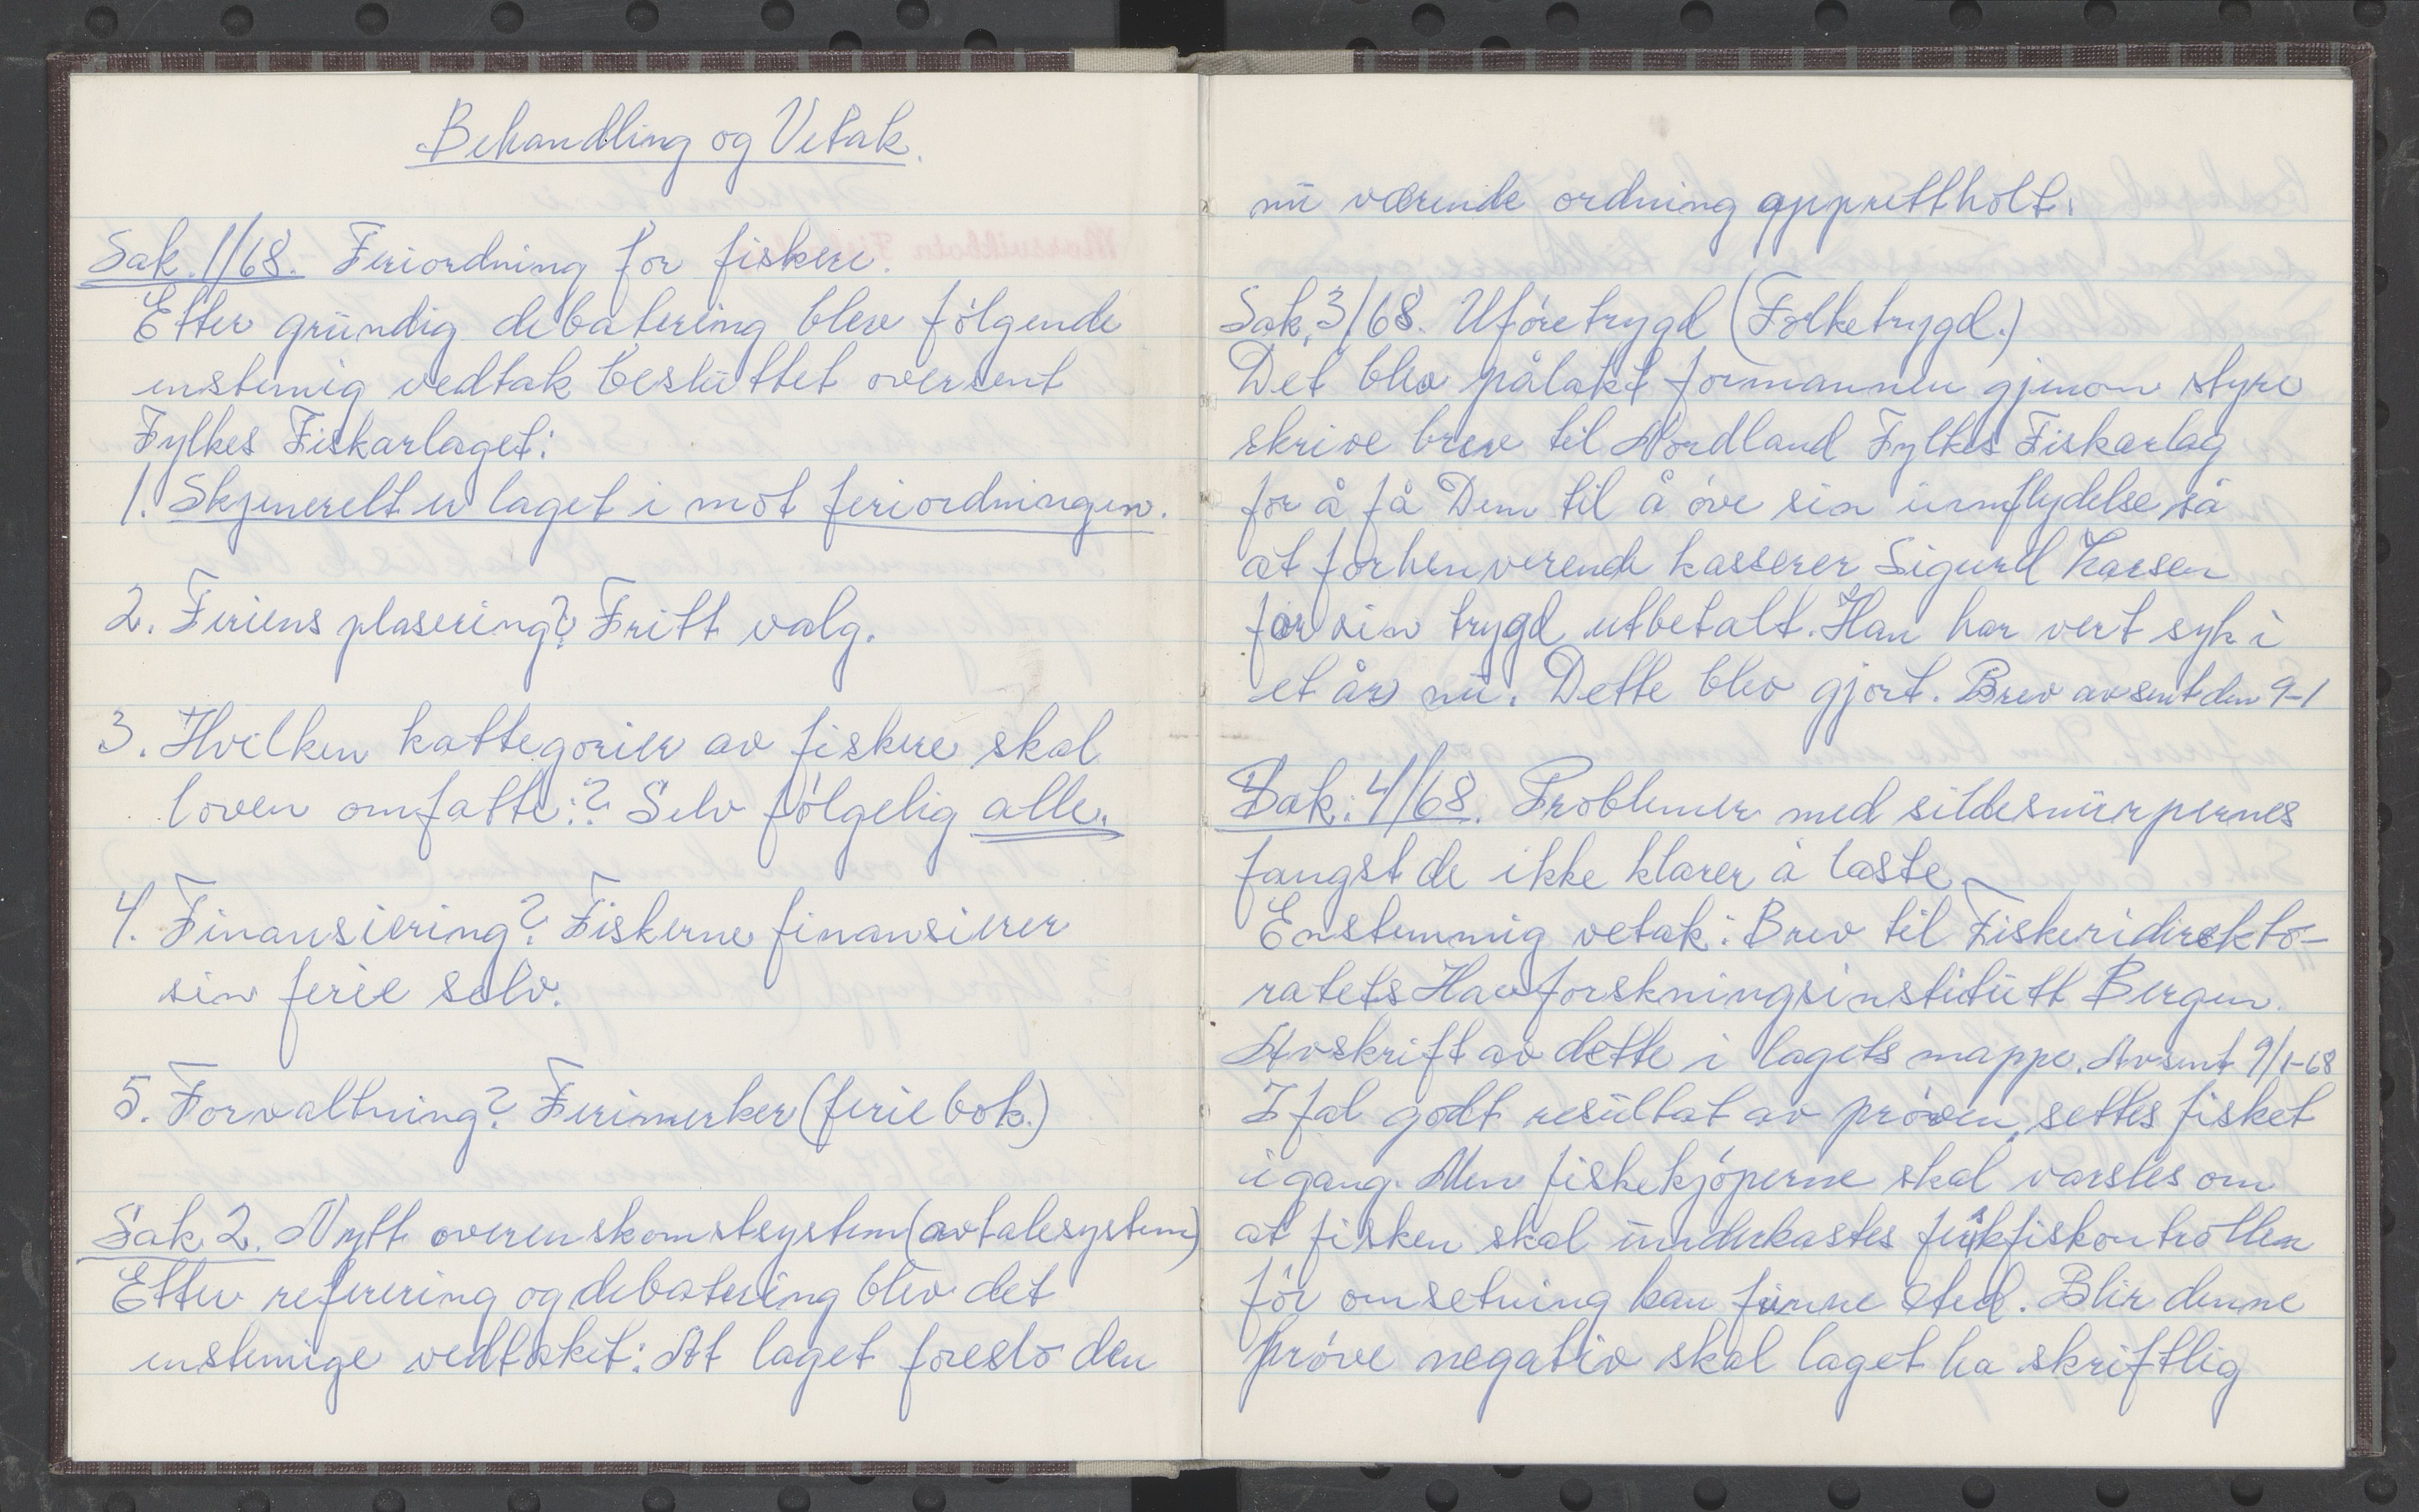 Behandling og Vetak.
Sak. 1/68. Feriordning for fiskere.
Etter grundig debatering blev følgende
enstemig vedtak besluttet oversent
Fylkes Fiskarlaget:
1. Skjenerelt er laget i mot feriordningen.
2. Feriens plasering? Fritt valg.
3. Hvilken kattegorier av fiskere skal
loven omfatte:? Selv følgelig alle.
4. Finansiering? Fiskerne finansierer
sin ferie selv.
5. Forvaltning? Ferimerker (ferie bok.)
Sak 2. Nytt overenskomstsystem (avtalesystem)
Etter referering og debatering blev det
enstemige vedtaket: At laget foreslo den
nu værende ordning opprettholt.
Sak. 3/68. Uføretrygd (Folketrygd.)
Det blev pålakt formannen gjenom styre
skrive brev til Nordland Fylkes Fiskarlag
for å få Dem til å øve sin innflydelse så
at forhenverende kasserer Sigurd
får sin trygd utbetalt. Han har vert syk i
et år nu. Dette blev gjort. Brev avsent den 9-1
Sak: 4/68. Problemer med sildesnurpernes
fangst de ikke klarer å laste
Enstemmig vetak: Brev til Fiskeridirekto-
ratets Havforskningsinstitutt Bergen.
Avskrift av dette i lagets mappe. Avsent 9/1-68
I fal godt resultat av prøven, settes fisket
igang. Men fiskekjøperne skal varsles om
at fisken skal underkastes ferskfiskontrollen
før omsetning kan finne sted. Blir denne
prøve negativ skal laget ha skriftlig